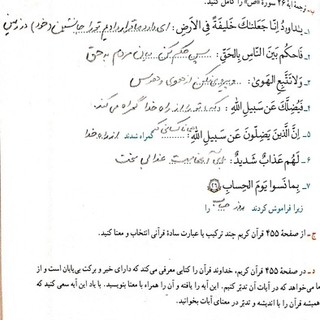 ب- ترجمهٔ آیهٔ ۲۶ سورهٔ «ص» را کامل کنید.
۱- یا داوود اِنّا جَعَلناکَ خَلیفَةً فِی الاَرضِ: ای داوود ما تو را جانشین (خود) در زمین
۲- فَاحکُم بَینَ النّاسِ بِالحَقِّ: پس حکم کن میان مردم به حق
۳- وَلا تَتَّبِعِ الهَویٰ: و پیروی مکن از هوی و هوس
۴- فَیُضِلَّکَ عَن سَبیلِ اللّٰهِ: که تو را از راه خدا گمراه می‌کند
۵- اِنَّ الَّذینَ یَضِلّونَ عَن سَبیلِ اللّٰهِ: کسانی که گمراه شدند از راه خدا
۶- لَهُم عَذابٌ شَدیدٌ: عذابی سخت
۷- بِما نَسوا یَومَ الحِسابِ ۲۶
زیرا فراموش کردند روز حساب را
ج- از صفحهٔ ۴۵۵ قرآن کریم چند ترکیب یا عبارت سادهٔ قرآنی انتخاب و معنا کنید.
د- در صفحهٔ ۴۵۵ قرآن کریم، خداوند قرآن را کتابی معرفی می‌کند که دارای خیر و برکت بی‌پایان است و از
ما می‌خواهد که در آیات آن تدبّر کنیم. این آیه را یافته و آن را همراه با معنا بنویسید. با یاد این آیه سعی کنید که
همیشه قرآن را با اندیشه و تدبّر در معنای آیات بخوانید.